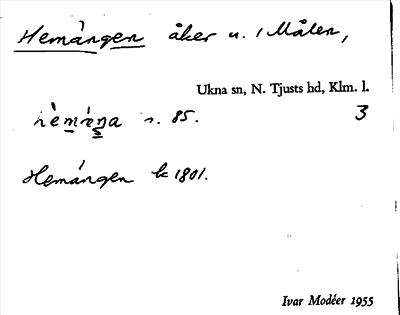 Hemången åker u. Målen,
Ukna sn, N. Tjusts hd, Klm. l.
hèmáŋa n. 85. 3
Hemången k 1801.
Ivar Modéer 1955